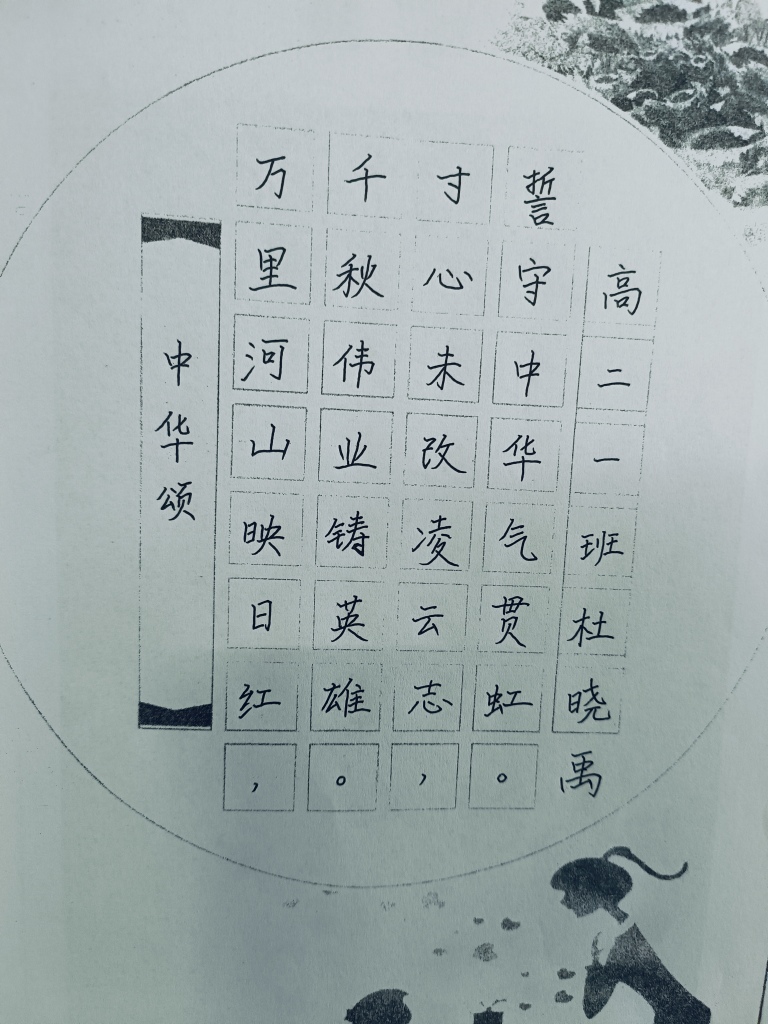 中华颂
万里河山映日红，
千秋伟业铸英雄。
寸心未改凌云志，
誓守中华气贯虹。
高二一班杜晓禹